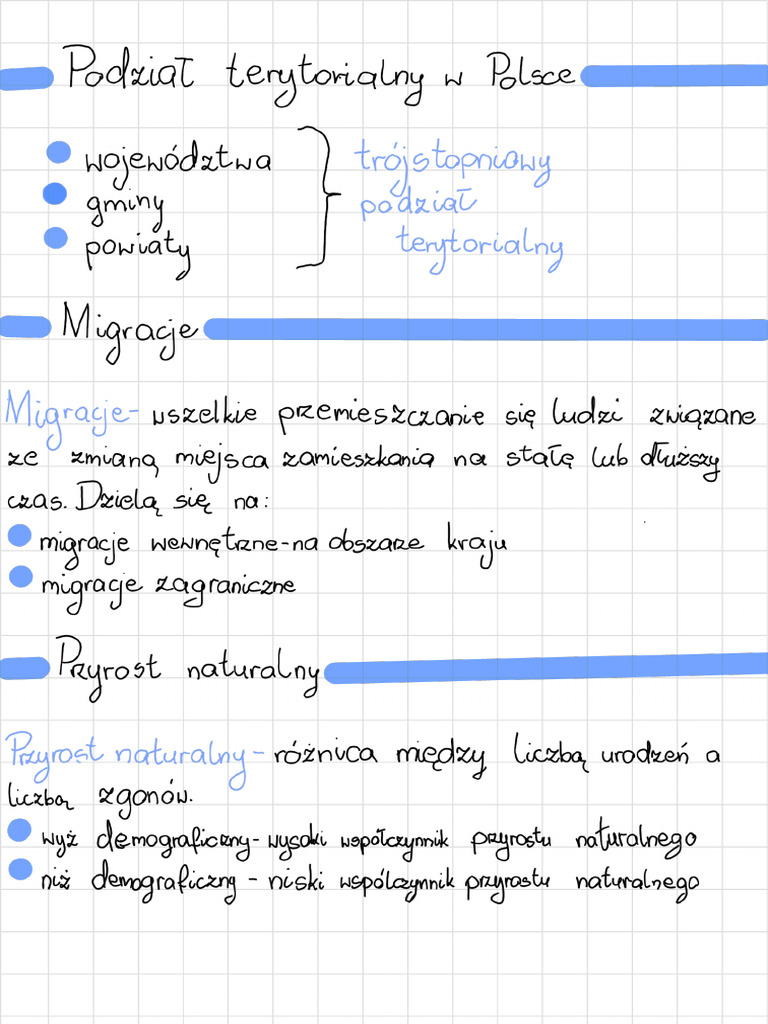 Podział terytorialny w Polsce
województwa
gminy
powiaty
trójstopniowy
podział
terytorialny
Migracje
Migracje- wszelkie przemieszczanie się ludzi związane
ze zmianą miejsca zamieszkania na stałę lub dłuższy
czas. Dzielą się na:
migracje wewnętrzne-na obszarze kraju
migracje zagraniczne
Przyrost naturalny
Przyrost naturalny- różnica między liczbą urodzeń a
liczbą zgonów.
wyż demograficzny- wysoki współczynnik przyrostu naturalnego
niż demograficzny - niski wspólczynnik przyrostu naturalnego